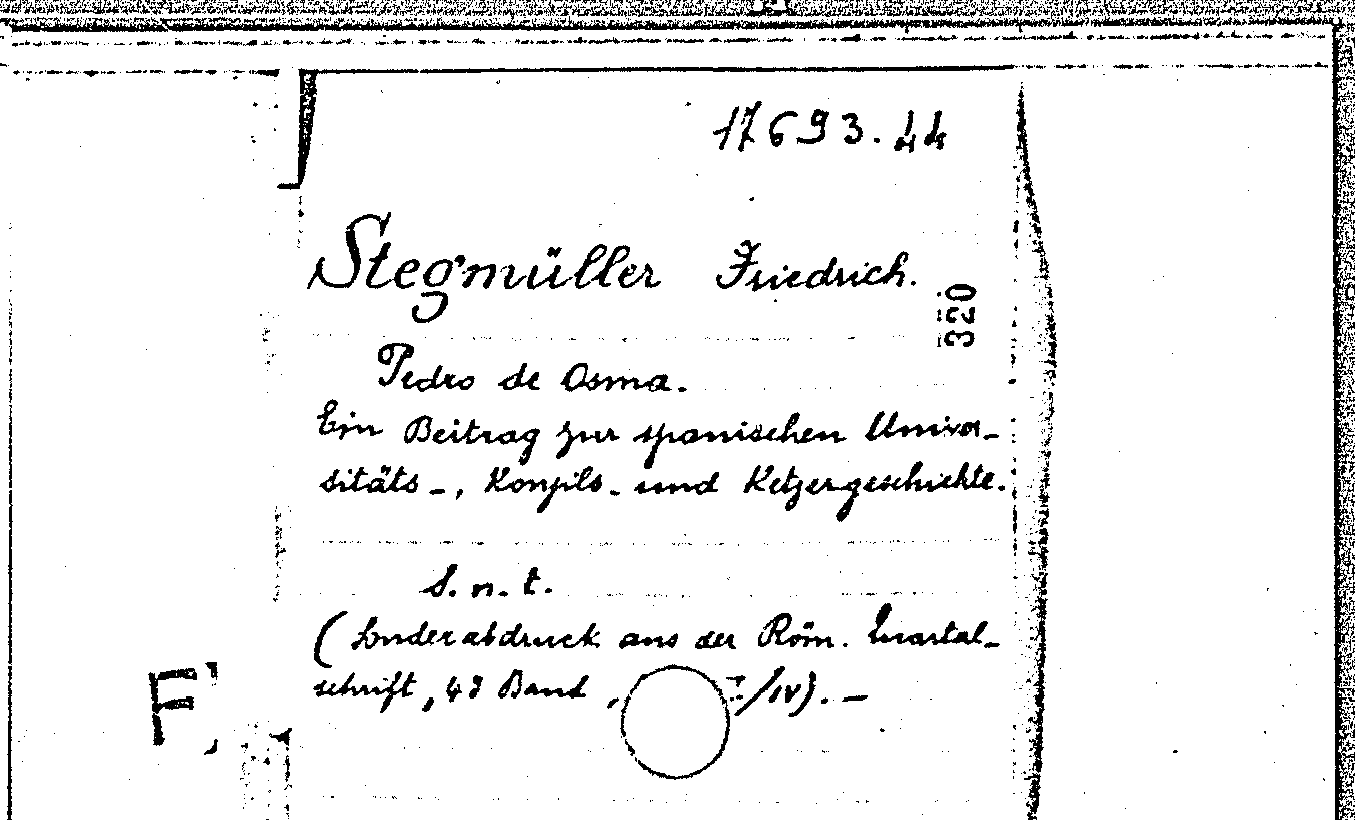 17693.44
Stegmüller Friedrich.
320
Pedro de Osma.
Ein Beitrag zur spanischen Univer-
sitäts-, Konzils- und Ketzergeschichte.
S. n. t.
(Sonderabdruck aus der Röm. Quartal-
schrift, 43 Band, /IV). -
F